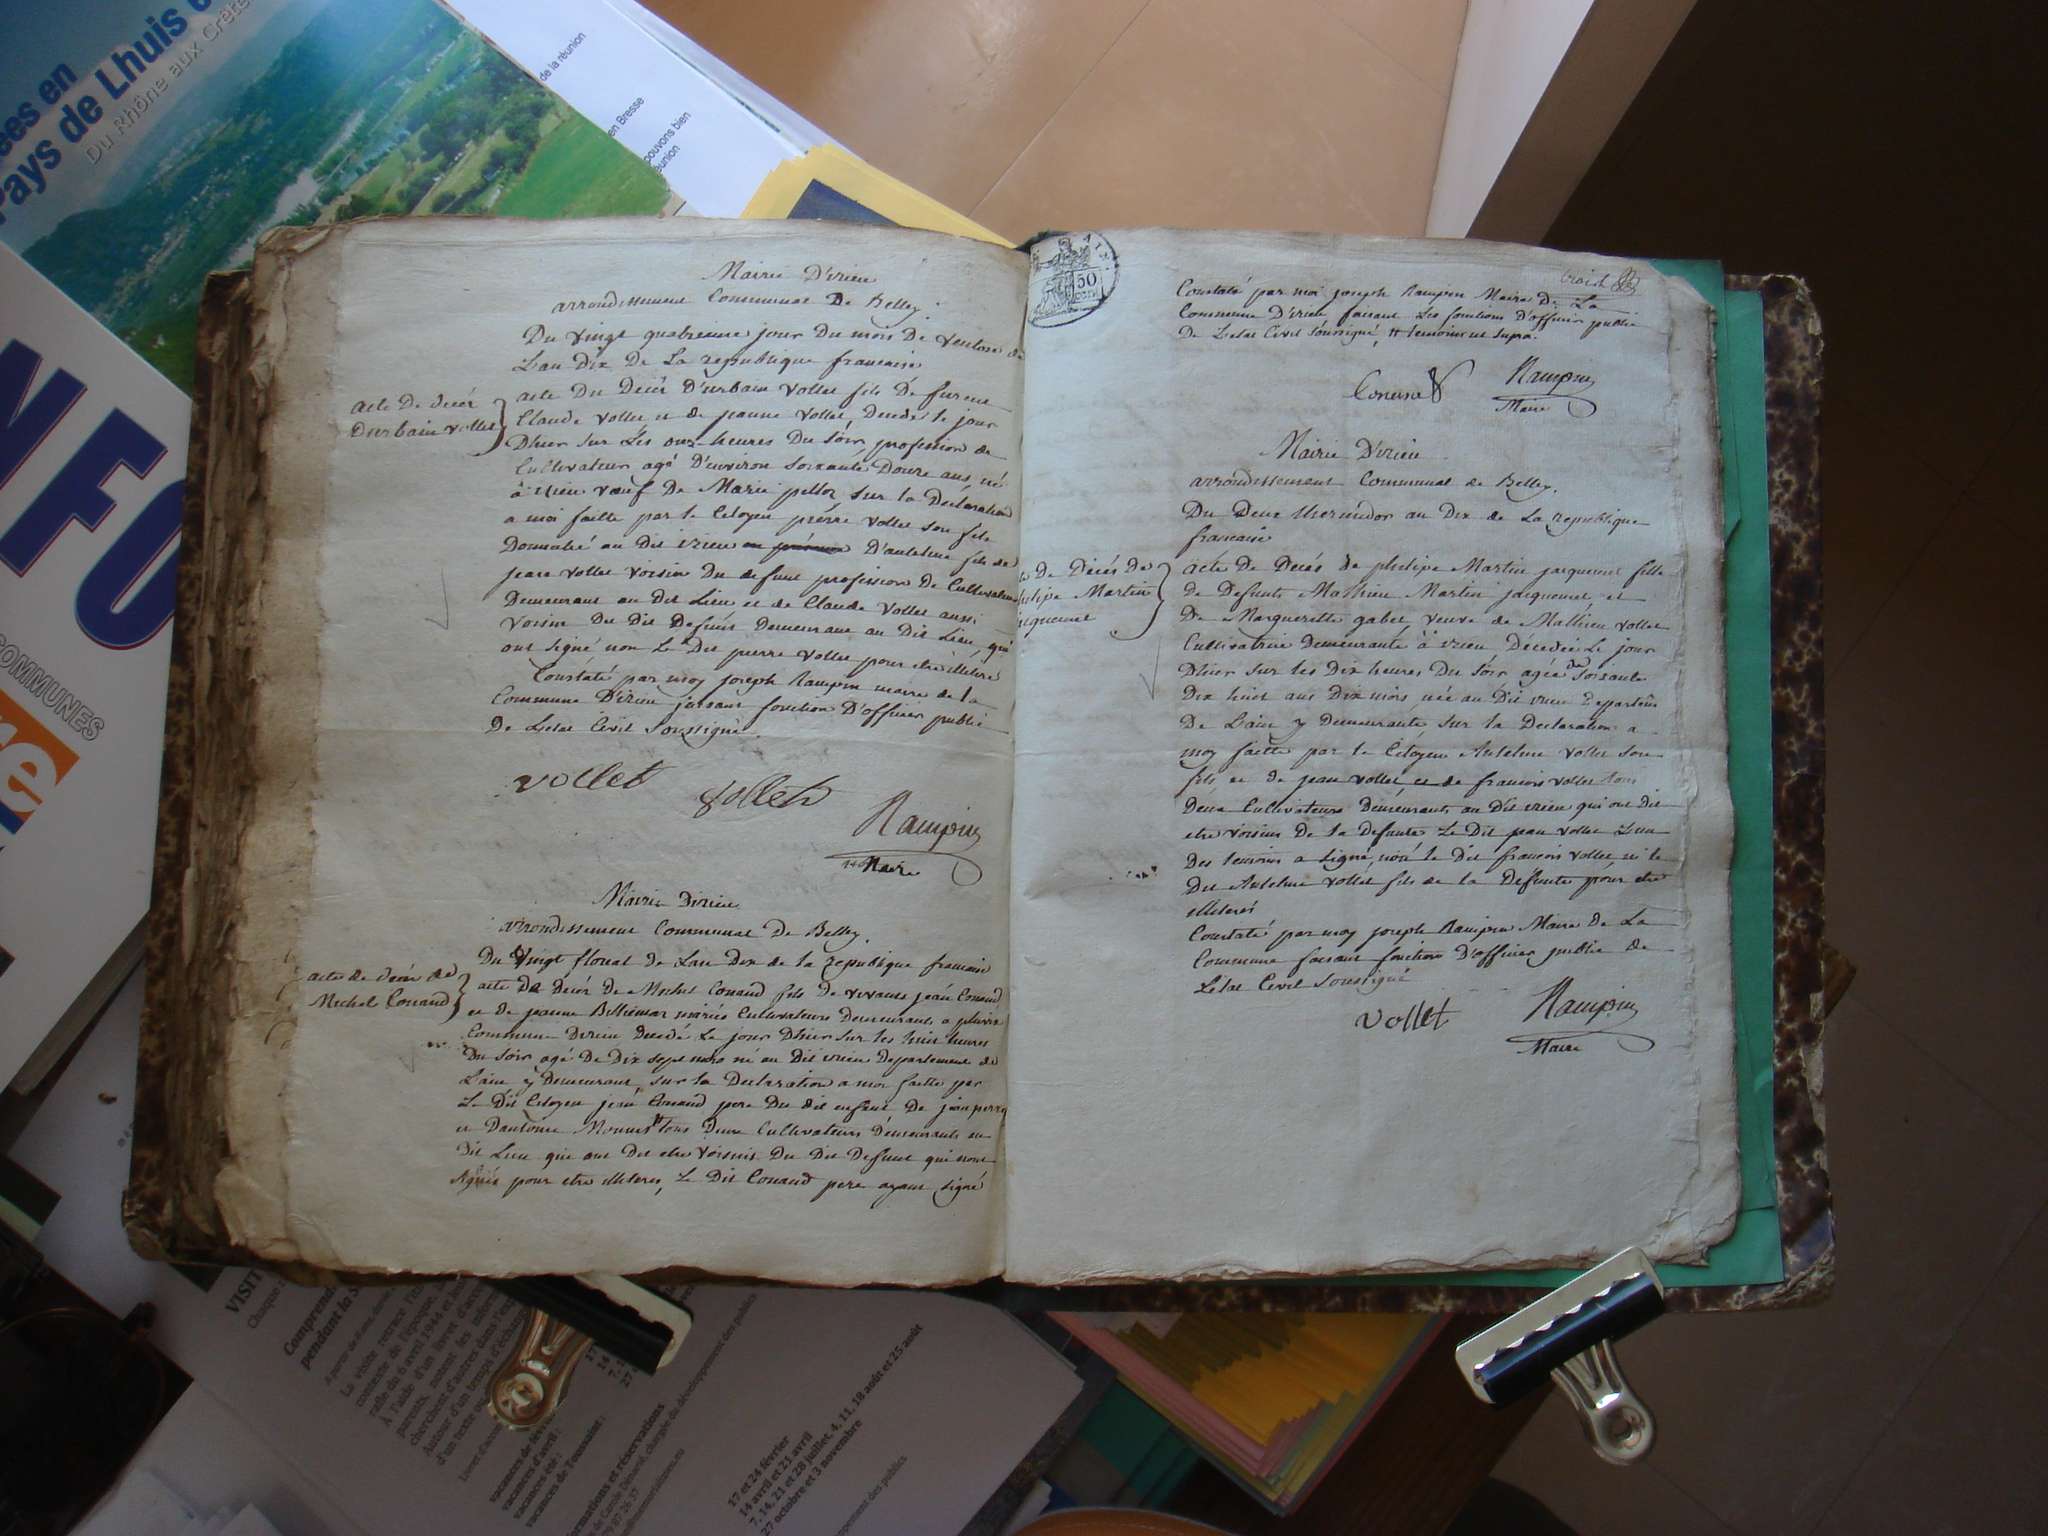 Mairie D'izieu
arrondissement Communal De Belley.
Du vingt quatrieme jour Du mois De Ventose de
L'an Dix De La republique francaise
acte De décés
Durbain vollet
acte Du Décés D'urbain vollet fils De furent
Claude vollet et de jeanne vollet Decedé le jour
D'hier sur Les onze heures Du soir, profession de
Cultivateur agé D'environ soixante Douze ans, né
à izieu veuf De Marie pellot sur la Declaration
a moi faitte par le Citoyen pierre vollet son fils
Domicilié au Dit izieu D'anthelme fils de
jean vollet voisin Du defunt profession De Cultivateur
Demeurant au Dit Lieu et de Claude vollet aussi
voisin Du Dit Defunt Demeurant au Dit Lieu, qui
ont signé non Le Dit pierre vollet pour etre illiteré
Constaté par moy joseph Rampin maire de la
Commune D'izieu faisant fonction D'officier public
De Letat Civil soussigné.
vollet vollet
Rampin
Maire
Mairie Dizieu
arrondissement Communal De Belley.
Du Vingt floreal de Lan Dix de la republique francaise
acte de décés de
Michel Conand
acte De décés De Michel Conand fils De vivants jean Conand
et de jeanne mariés Cultivateurs Demeurants a
Commune Dizieu Decedé Le jour D'hier sur les huit heures
Du soir agé De Dix sept mois né au Dit izieu Departement de
L'ain y Demeurant, sur la Declaration a moi faitte par
Le Dit Citoyen jean Conand pere Du dit enfant De jean pierre
et Dantoine tous Deux Cultivateurs Demeurants au
Dit Lieu qui ont Dit etre voisins Du Dit Defunt qui nont
signés pour etre illiterés, Le Dit Conand pere ayant signé
50
Constaté par moi joseph Rampin Maire De La
Commune D'izieu faisant Les fonctions D'officier public
De Letat Civil soussigné,
Conand Rampin
Maire
Mairie D'izieu
arrondissement Communal de Belley.
Du Deux thermidor an Dix de La republique
francaise
De Décés De
philipe Martin
jacquemet
acte De Decés de philipe Martin jacquemet fille
de Defunts Mathieu Martin jacquemet et
De Marguerite gabet veuve de Mathieu vollet
Cultivatrice Demeurante à izieu, Décedée Le jour
D'hier sur les Dix heures Du soir agée de soixante
Dix huit ans Dix mois, née au Dit izieu Departem
De L'ain y Demeurante, sur la Declaration a
moy faitte par le Citoyen Antelme vollet son
fils, et de jean vollet, et de francois vollet tous
Deux Cultivateurs Demeurants au Dit izieu qui ont Dit
etre voisins De la Defunte Le Dit jean vollet Lun
Des temoins a signé, non le Dit francois vollet, ni le
Dit Antelme vollet fils de la Defunte pour etre
illiterés
Constaté par moy joseph Rampin Maire de La
Commune faisant fonction D'officier public de
Letat Civil soussigné
vollet Rampin
Maire
Pays de Lhuis
Du Rhône aux
de la réunion
en Bresse
pouvons bien
NFO
COMMUNES
VISIT
pendant la
La visite retrace
17 et 24 février
14 avril et 21 avril
7, 14, 21 et 28 juillet, 4, 11, 18 août et 25 août
27 octobre et 3 novembre
vacances d'avril :
vacances été :
vacances de Toussaint :